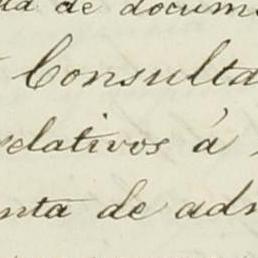 da de docum
Consulta
relativos á
nta de adm